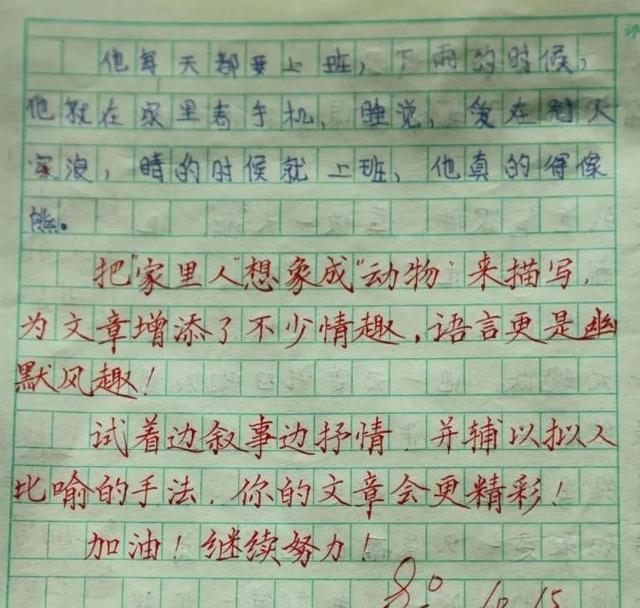 他每天都要上班，下雨的时候，
他就在家里看手机、睡觉，爱在
浪，晴的时候就上班、他真的得像
熊。
把"家里人"想象成"动物"来描写，
为文章增添了不少情趣，语言更是幽
默风趣！
试着边叙事边抒情，并辅以拟人
比喻的手法，你的文章会更精彩！
加油！继续努力！
10.15